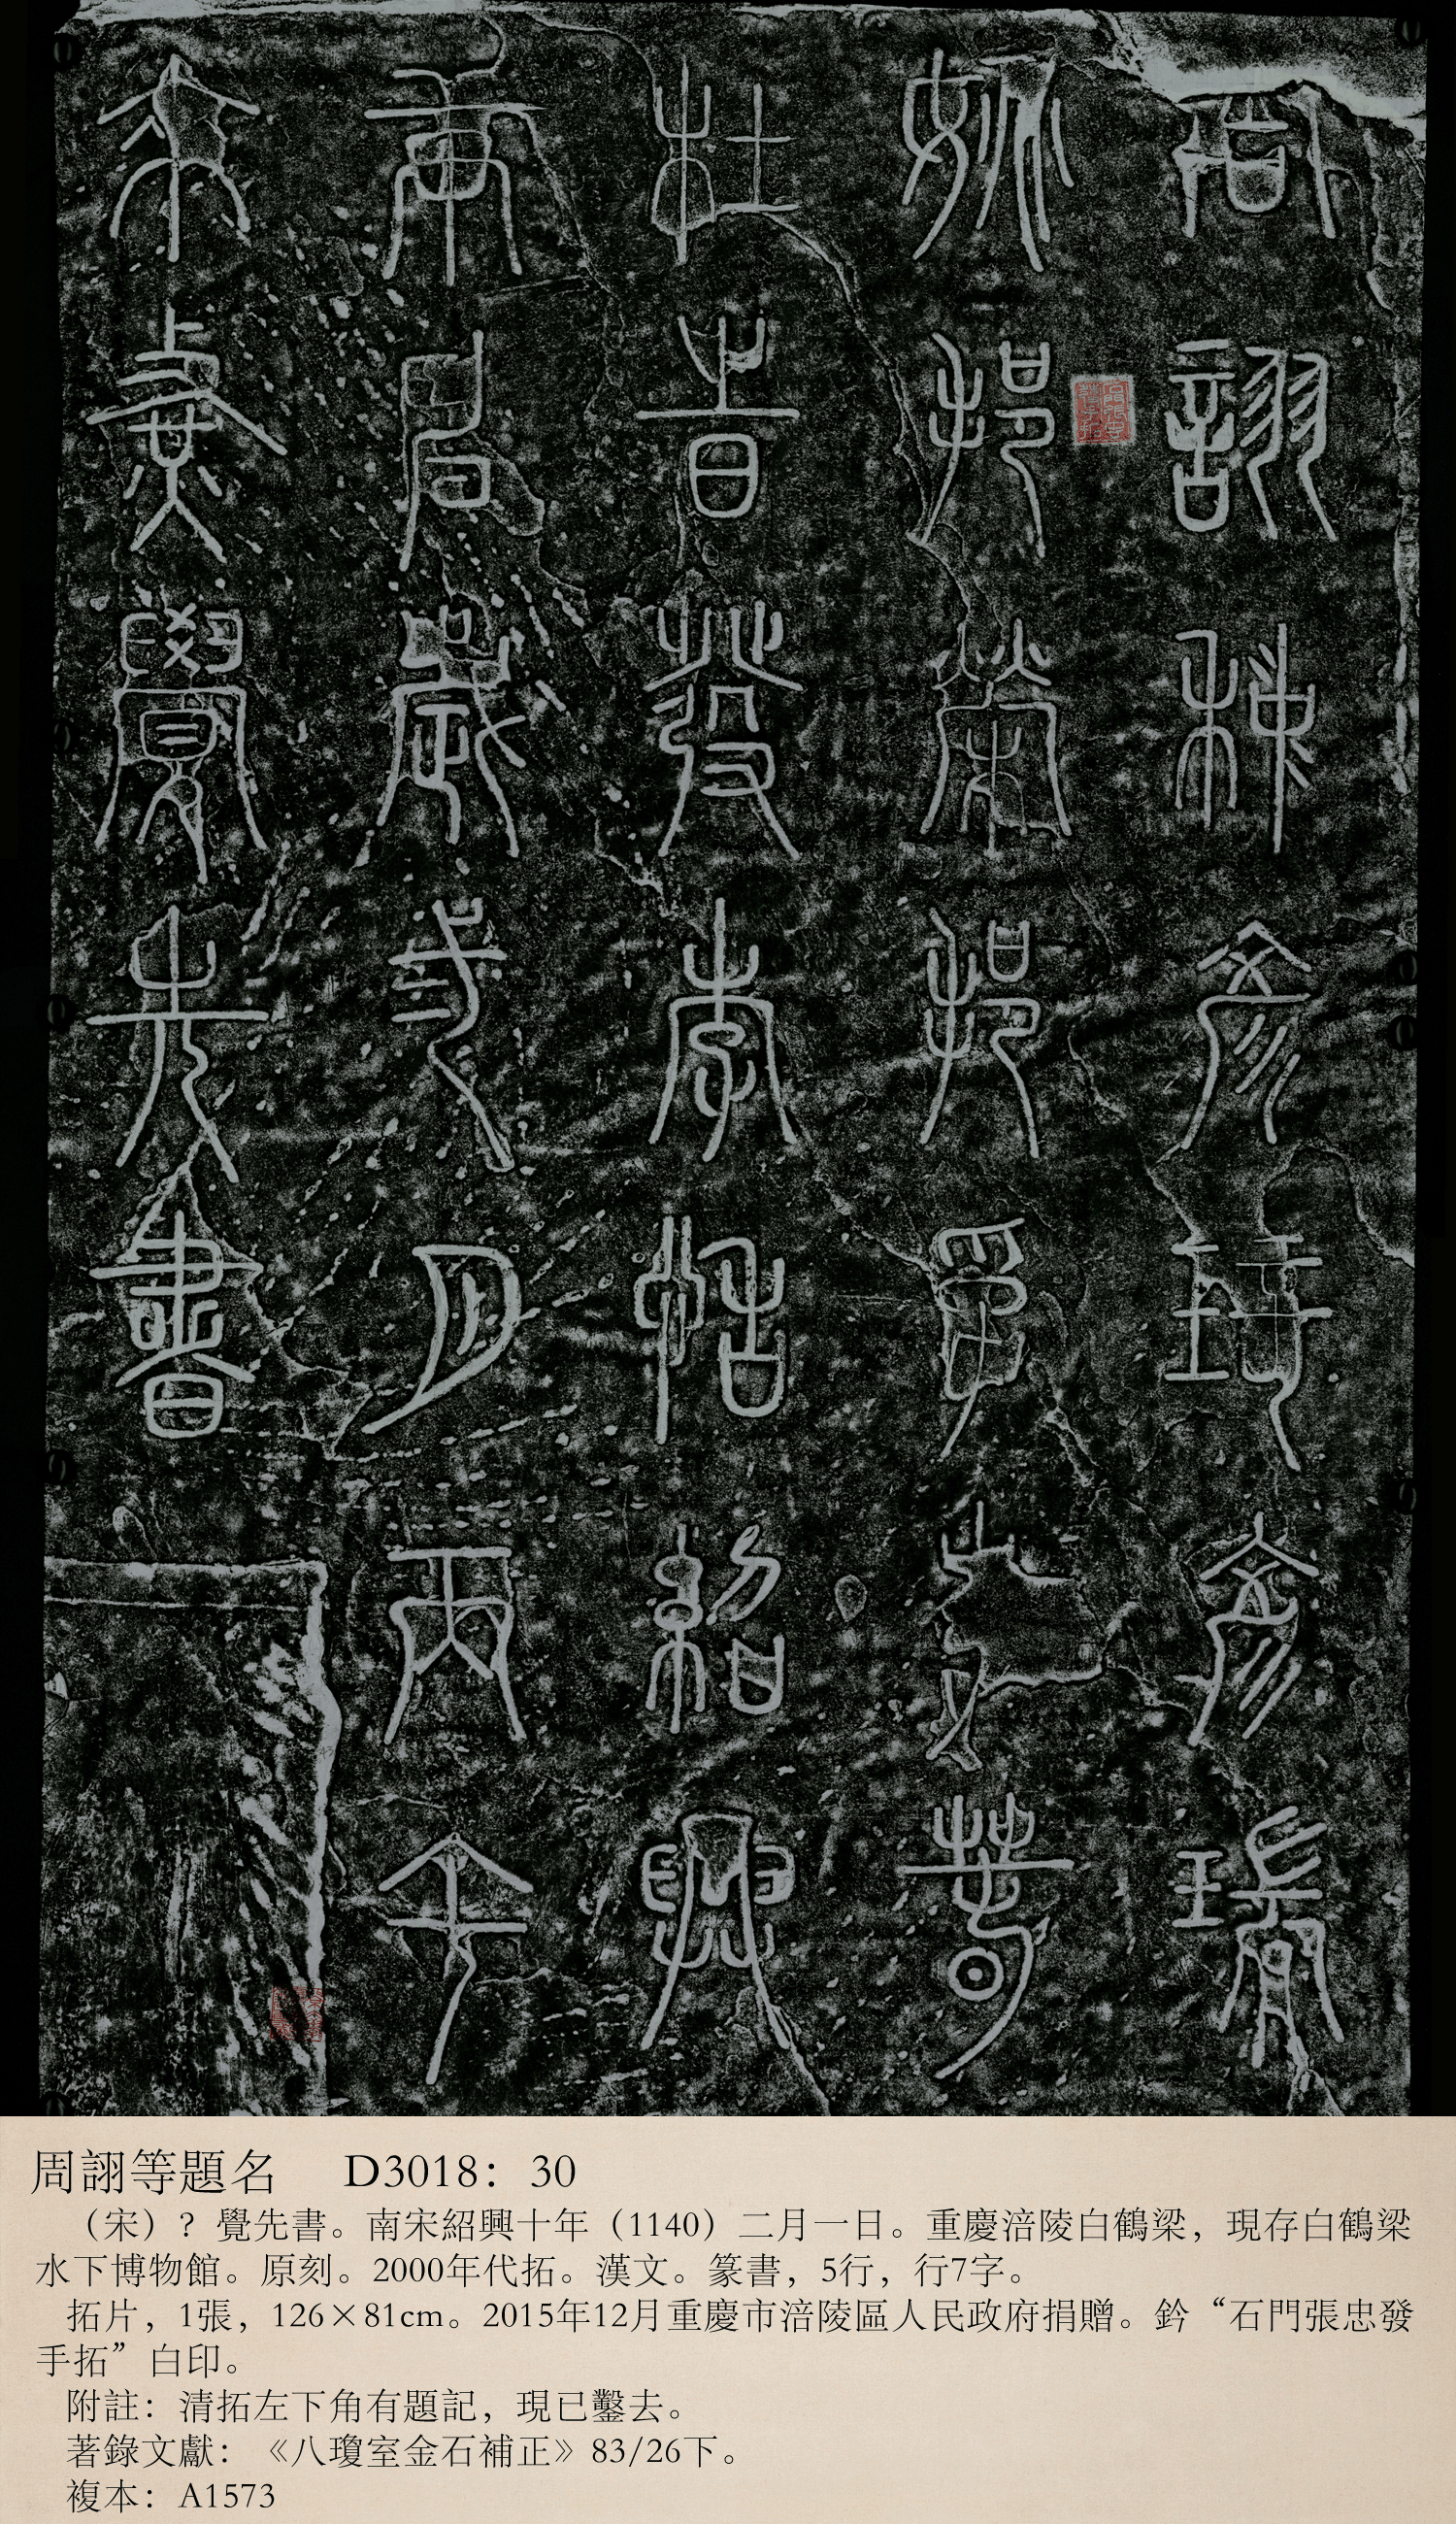 周詡种彥琦彥瑞
姚邦榮邦
杜旹發李恬紹興
庚申歲弍月丙午
來覺先書
周詡等題名 D3018：30
（宋）？覺先書。南宋紹興十年（1140）二月一日。重慶涪陵白鶴梁，現存白鶴梁
水下博物館。原刻。2000年代拓。漢文。篆書，5行，行7字。
拓片，1張，126×81cm。2015年12月重慶市涪陵區人民政府捐贈。鈐“石門張忠發
手拓”白印。
附註：清拓左下角有題記，現已鑿去。
著錄文獻：《八瓊室金石補正》83/26下。
複本：A1573